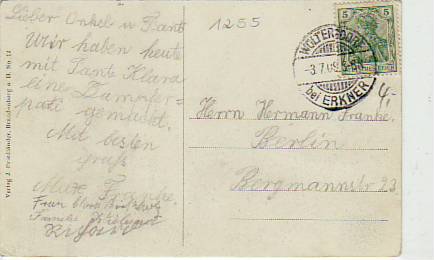 Lieber Onkel u Tante
Wir haben heute
mit Tante Klara
eine Dampfer=
pati gemacht.
Mit besten
gruß
Franke.
Frau
Familie
1255
5
5
WOLTERSDORF
-3.7.09.
bei ERKNER
4,-
Herrn Hermann Franke,
Berlin
Bergmannstr 23
Verlag J. Friedländer, Brandenburg a. H. No. 12